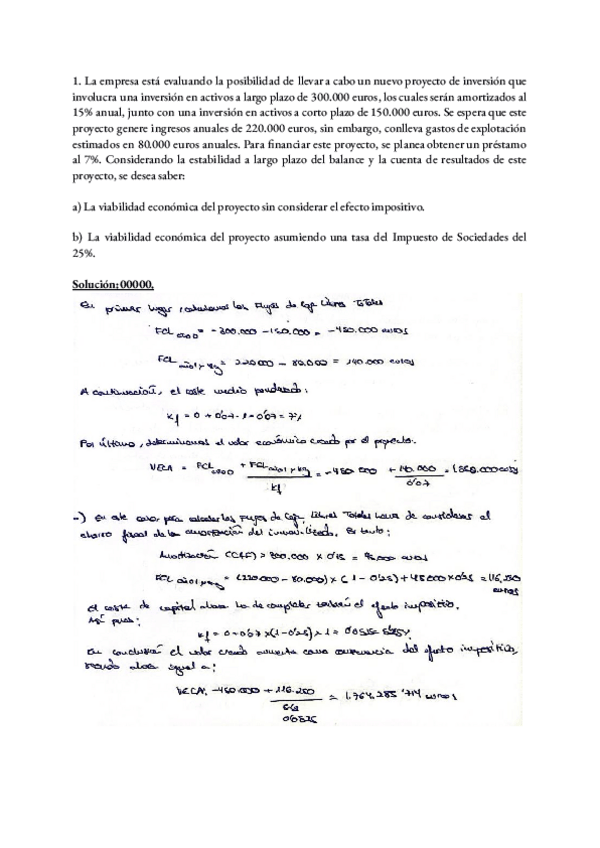 1. La empresa está evaluando la posibilidad de llevar a cabo un nuevo proyecto de inversión que
involucra una inversión en activos a largo plazo de 300.000 euros, los cuales serán amortizados al
15% anual, junto con una inversión en activos a corto plazo de 150.000 euros. Se espera que este
proyecto genere ingresos anuales de 220.000 euros, sin embargo, conlleva gastos de explotación
estimados en 80.000 euros anuales. Para financiar este proyecto, se planea obtener un préstamo
al 7%. Considerando la estabilidad a largo plazo del balance y la cuenta de resultados de este
proyecto, se desea saber:
a) La viabilidad económica del proyecto sin considerar el efecto impositivo.
b) La viabilidad económica del proyecto asumiendo una tasa del Impuesto de Sociedades del
25%.
Solución:00000.
En primer lugar, calculamos los Flujos de Caja Libres Totales
= -300.000 - 150.000 = -450.000 euros
= 220000 - 80.000 = 140.000 euros
A continuación, el coste medio ponderado:
Kf = 0 + 0'07 · 1 = 0'07 = 7%
Por último, determinamos el valor económico creado por el proyecto.
VECA =
Kf
0'07
-) En este caso, para calcular los Flujos de Caja Libres Totales de considerar el
ahorro fiscal de la amortización del inmovilizado. Por tanto:
Amortización 300.000 x 0'15 = euros
= (220000 - 80.000) x (1 - 0'25) + 45000 x 0'25 = 116,250
euros
El coste de capital ahora ha de contemplar también el efecto impositivo.
Así pues:
En conclusión el valor creado aumenta como consecuencia del efecto impositivo,
siendo ahora igual a:
VECA: -450.000 + 116.250 = 1.764.285'714 euros